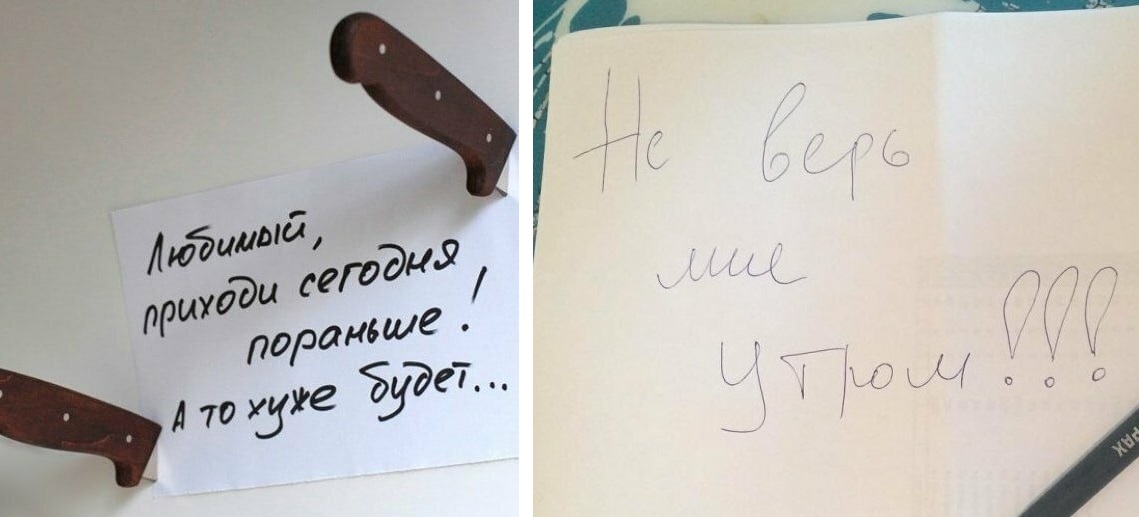 Любимый,
приходи сегодня
пораньше!
А то хуже будет...
Не верь
мне
утром!!!
РАХ